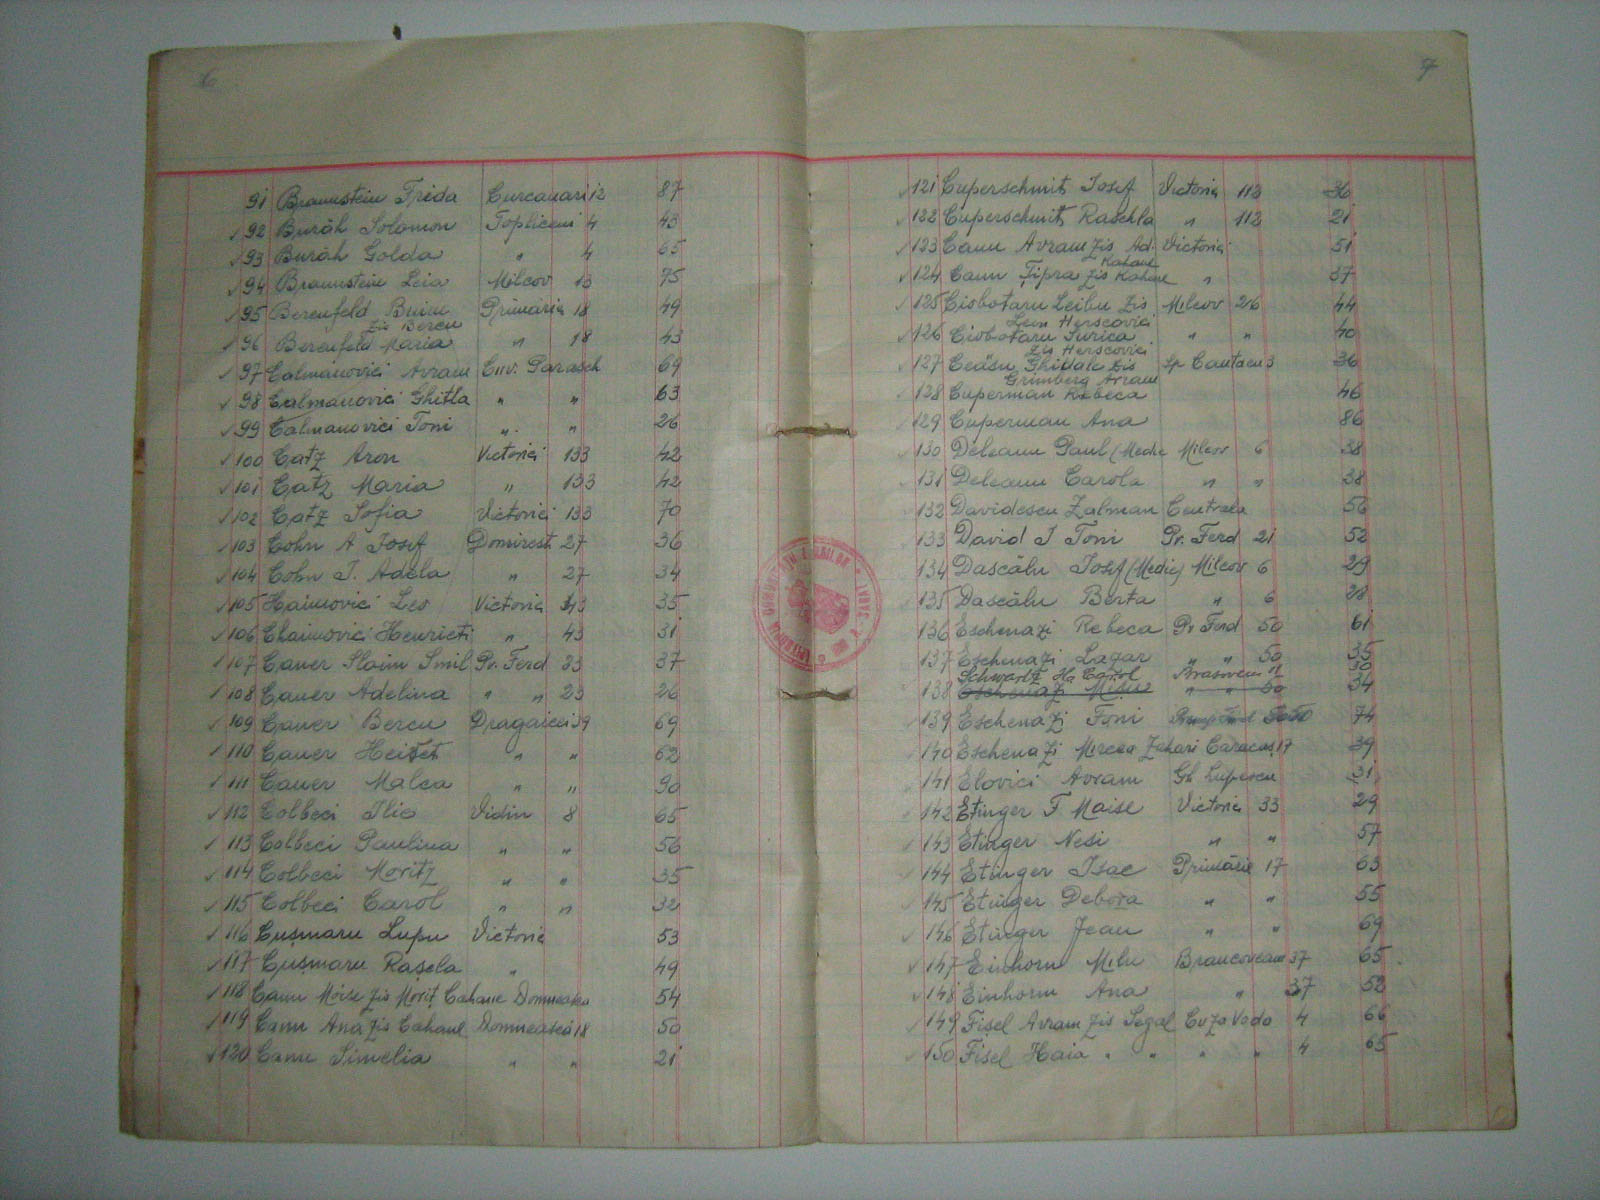 6
91 Braunstein Frida Curcanari 12 87
92 Burăh Solomon Topliceni 4 43
93 Burăh Golda " 4 65
94 Braunstein Leia Milcov 13 75
95 Berenfeld Buium Primăria 18 49
zis Bercu
96 Berenfeld Maria " 18 43
97 Calmanovici Avram Cuv. Parasch 69
98 Calmanovici Ghitla " " 63
99 Calmanovici Toni " " 26
100 Catz Aron Victoria 133 42
101 Catz Maria " 133 42
102 Catz Sofia Victoria 133 70
103 Cohn A Iosif Domirest. 27 36
104 Cohn I. Adela " 27 34
105 Haimovici Leo Victoria 43 35
106 Chaimovici Henrieti " 43 31
107 Caner Sloim Smil Pr. Ferd 23 37
108 Caner Adelina " " 23 26
109 Caner Bercu Dragaicei 39 69
110 Caner " " 62
111 Caner Malca " " 90
112 Colbeci Ilie Vidin 8 65
113 Colbeci Paulina " " 56
114 Colbeci Moritz " " 35
115 Colbeci Carol " " 32
116 Cușmaru Lupu Victoria 53
117 Cușmaru Rasela " 49
118 Canu Moise zis Moriț Cahane Domneasca 54
119 Canu Ana zis Cahane Domneasca 18 50
120 Canu Simelia " " 21
7
121 Cuperschmit Iosif Victoria 112 36
122 Cuperschmit Raschla " 112 21
123 Canu Avram zis Ad. Victoria 51
Kahane
124 Canu Țipra zis Kahane " 37
125 Ciobotaru Leibu zis Milcov 26 44
Leon Herscovici
126 Ciobotaru Surica " " 40
zis Herscovici
127 Ghidale zis Sp Cantacu 3 36
Grimberg Avram
128 Cuperman Rebeca 46
129 Cuperman Ana 86
130 Deleanu Paul (Medic Milcov 6 38
131 Deleanu Carola " " 38
132 Davidescu Zalman Centrala 56
133 David I Toni Pr. Ferd 21 52
134 Dascălu Iosif (Medic) Milcov 6 29
135 Dascălu Berta " 6 28
136 Eschenazi Rebeca Pr Ferd 50 61
137 Eschenazi Lazar " " 50 35
Schwartz H. Carol Brasoveni 11 30
138 Eschenazi " " 50 34
139 Eschenazi Toni 50 74
140 Eschenazi Mircea Zahari Caracaș 17 39
141 Elovici Avram Gh Lupescu 31
142 Etinger F Maise Victoria 33 29
143 Etinger Nesi " " 57
144 Etinger Isac Primărie 17 63
145 Etinger Debora " " 55
146 Etinger Jean " " 69
147 Einhorn Milu Brancoveanu 37 65
148 Einhorn Ana " 37 52
149 Fișel Avram zis Segal Cuza Voda 4 66
150 Fișel Haia " " " " 4 65